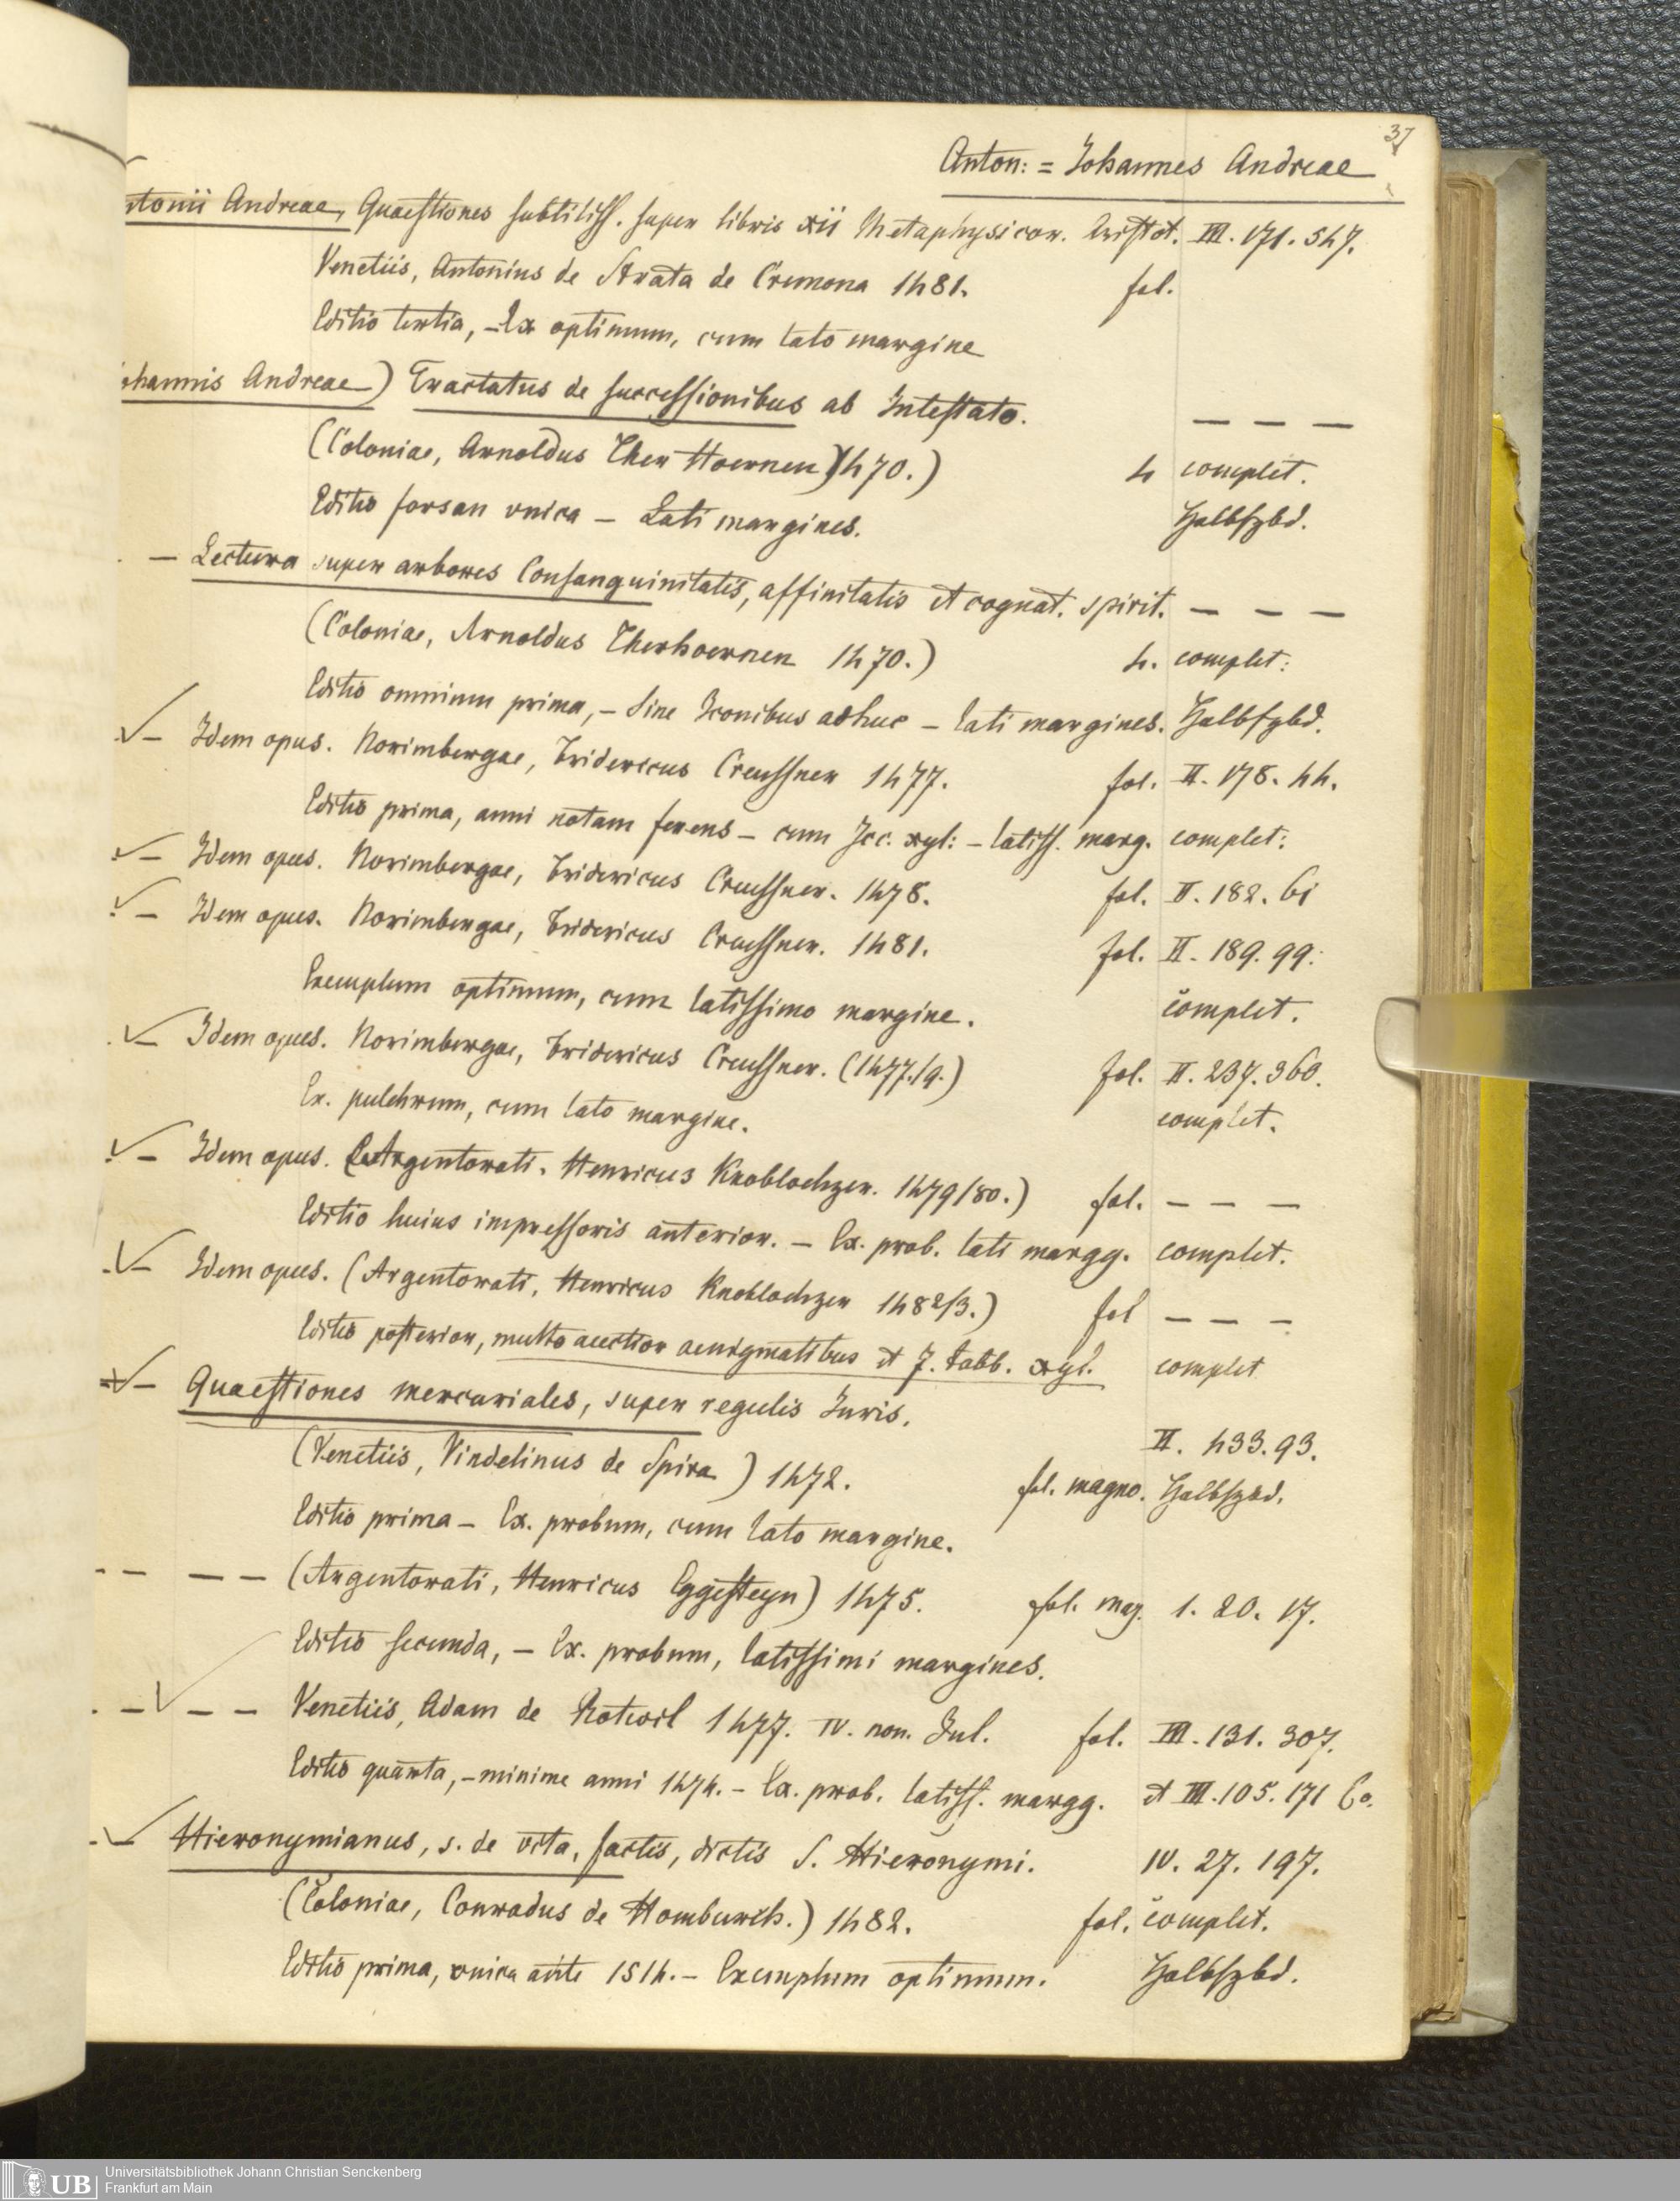 37
Anton: = Johannes Andreae
ntonii Andreae, Quaestiones subtiliss. super libris xii Metaphysicor. Aristot. III. 171. 547.
Venetiis, Antonius de Strata de Cremona 1481. fol.
Editio tertia, – Ex optimum, cum lato margine
ohannis Andreae) Tractatus de successionibus ab Intestato. — — —
(Coloniae, Arnoldus Ther Hoernen) 1470.) 4 complet.
Editio forsan vnica – Lati margines. Halbfzbd.
— Lectura super arbores Consanguinitatis, affinitatis et cognat. spirit. — — —
(Coloniae, Arnoldus Therhoernen 1470.) 4. complet:
Editio omnium prima, – Sine Iconibus adhuc – lati margines. Halbfzbd.
— Idem opus. Norimbergae, Fridericus Creussner 1477. fol. II. 178. 44.
Editio prima, anni notam ferens – cum Icc. xyl: – latiss. marg. complet:
— Idem opus. Norimbergae, Fridericus Creussner. 1478. fol. II. 182. 61
— Idem opus. Norimbergae, Fridericus Creussner. 1481. fol. II. 189. 99.
Exemplum optimum, cum latissimo margine. complet.
— Idem opus. Norimbergae, Fridericus Creussner. (1477./9.) fol. II. 237. 360.
Ex. pulchrum, cum lato margine. complet.
— Idem opus. (Argentorati. Henricus Knoblochzer. 1479/80.) fol. — — —
Editio huius impressoris anterior. – Ex. prob. lati margg. complet.
— Idem opus. (Argentorati, Henricus Knoblochzer 1482/3.) fol — — —
Editio posterior, multo auctior aenigmatibus et 7. tabb. xyl. complet
— Quaestiones mercuriales, super regulis Iuris. II. 433. 93.
(Venetiis, Vindelinus de Spira) 1472. fol. magno. Halbfzbd.
Editio prima – Ex. probum, cum lato margine.
— — — — (Argentorati, Henricus Eggesteyn) 1475. fol. mag. 1. 20. 17.
Editio secunda, – Ex. probum, latissimi margines.
— — — Venetiis, Adam de Rotwil 1477. IV. non. Jul. fol. III. 131. 307.
Editio quarta, – minime anni 1474. – Ex. prob. latiss. margg. et III. 105. 171
— Hieronymianus, s. de vita, factis, dictis S. Hieronymi. IV. 27. 197.
(Coloniae, Conradus de Homburch.) 1482. fol. complet.
Editio prima, vnica ante 1514. – Exemplum optimum. Halbfzbd.
UB
Universitätsbibliothek Johann Christian Senckenberg
Frankfurt am Main